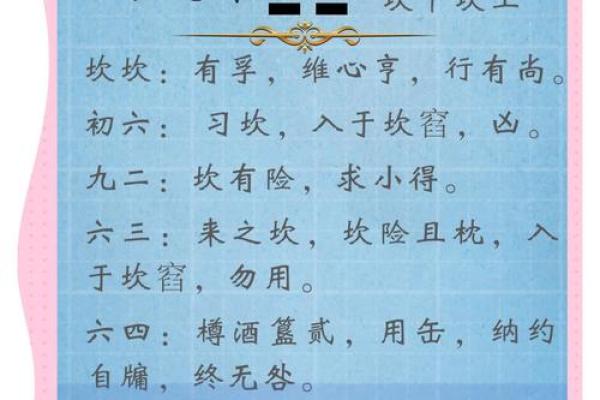 坎下坎上
坎坎：有孚，维心亨，行有尚。
初六：习坎，入于坎窞，凶。
九二：坎有险，求小得。
六三：来之坎，坎险且枕，入
于坎窞，勿用。
六四：樽酒簋贰，用缶，纳约
自牖，终无咎。